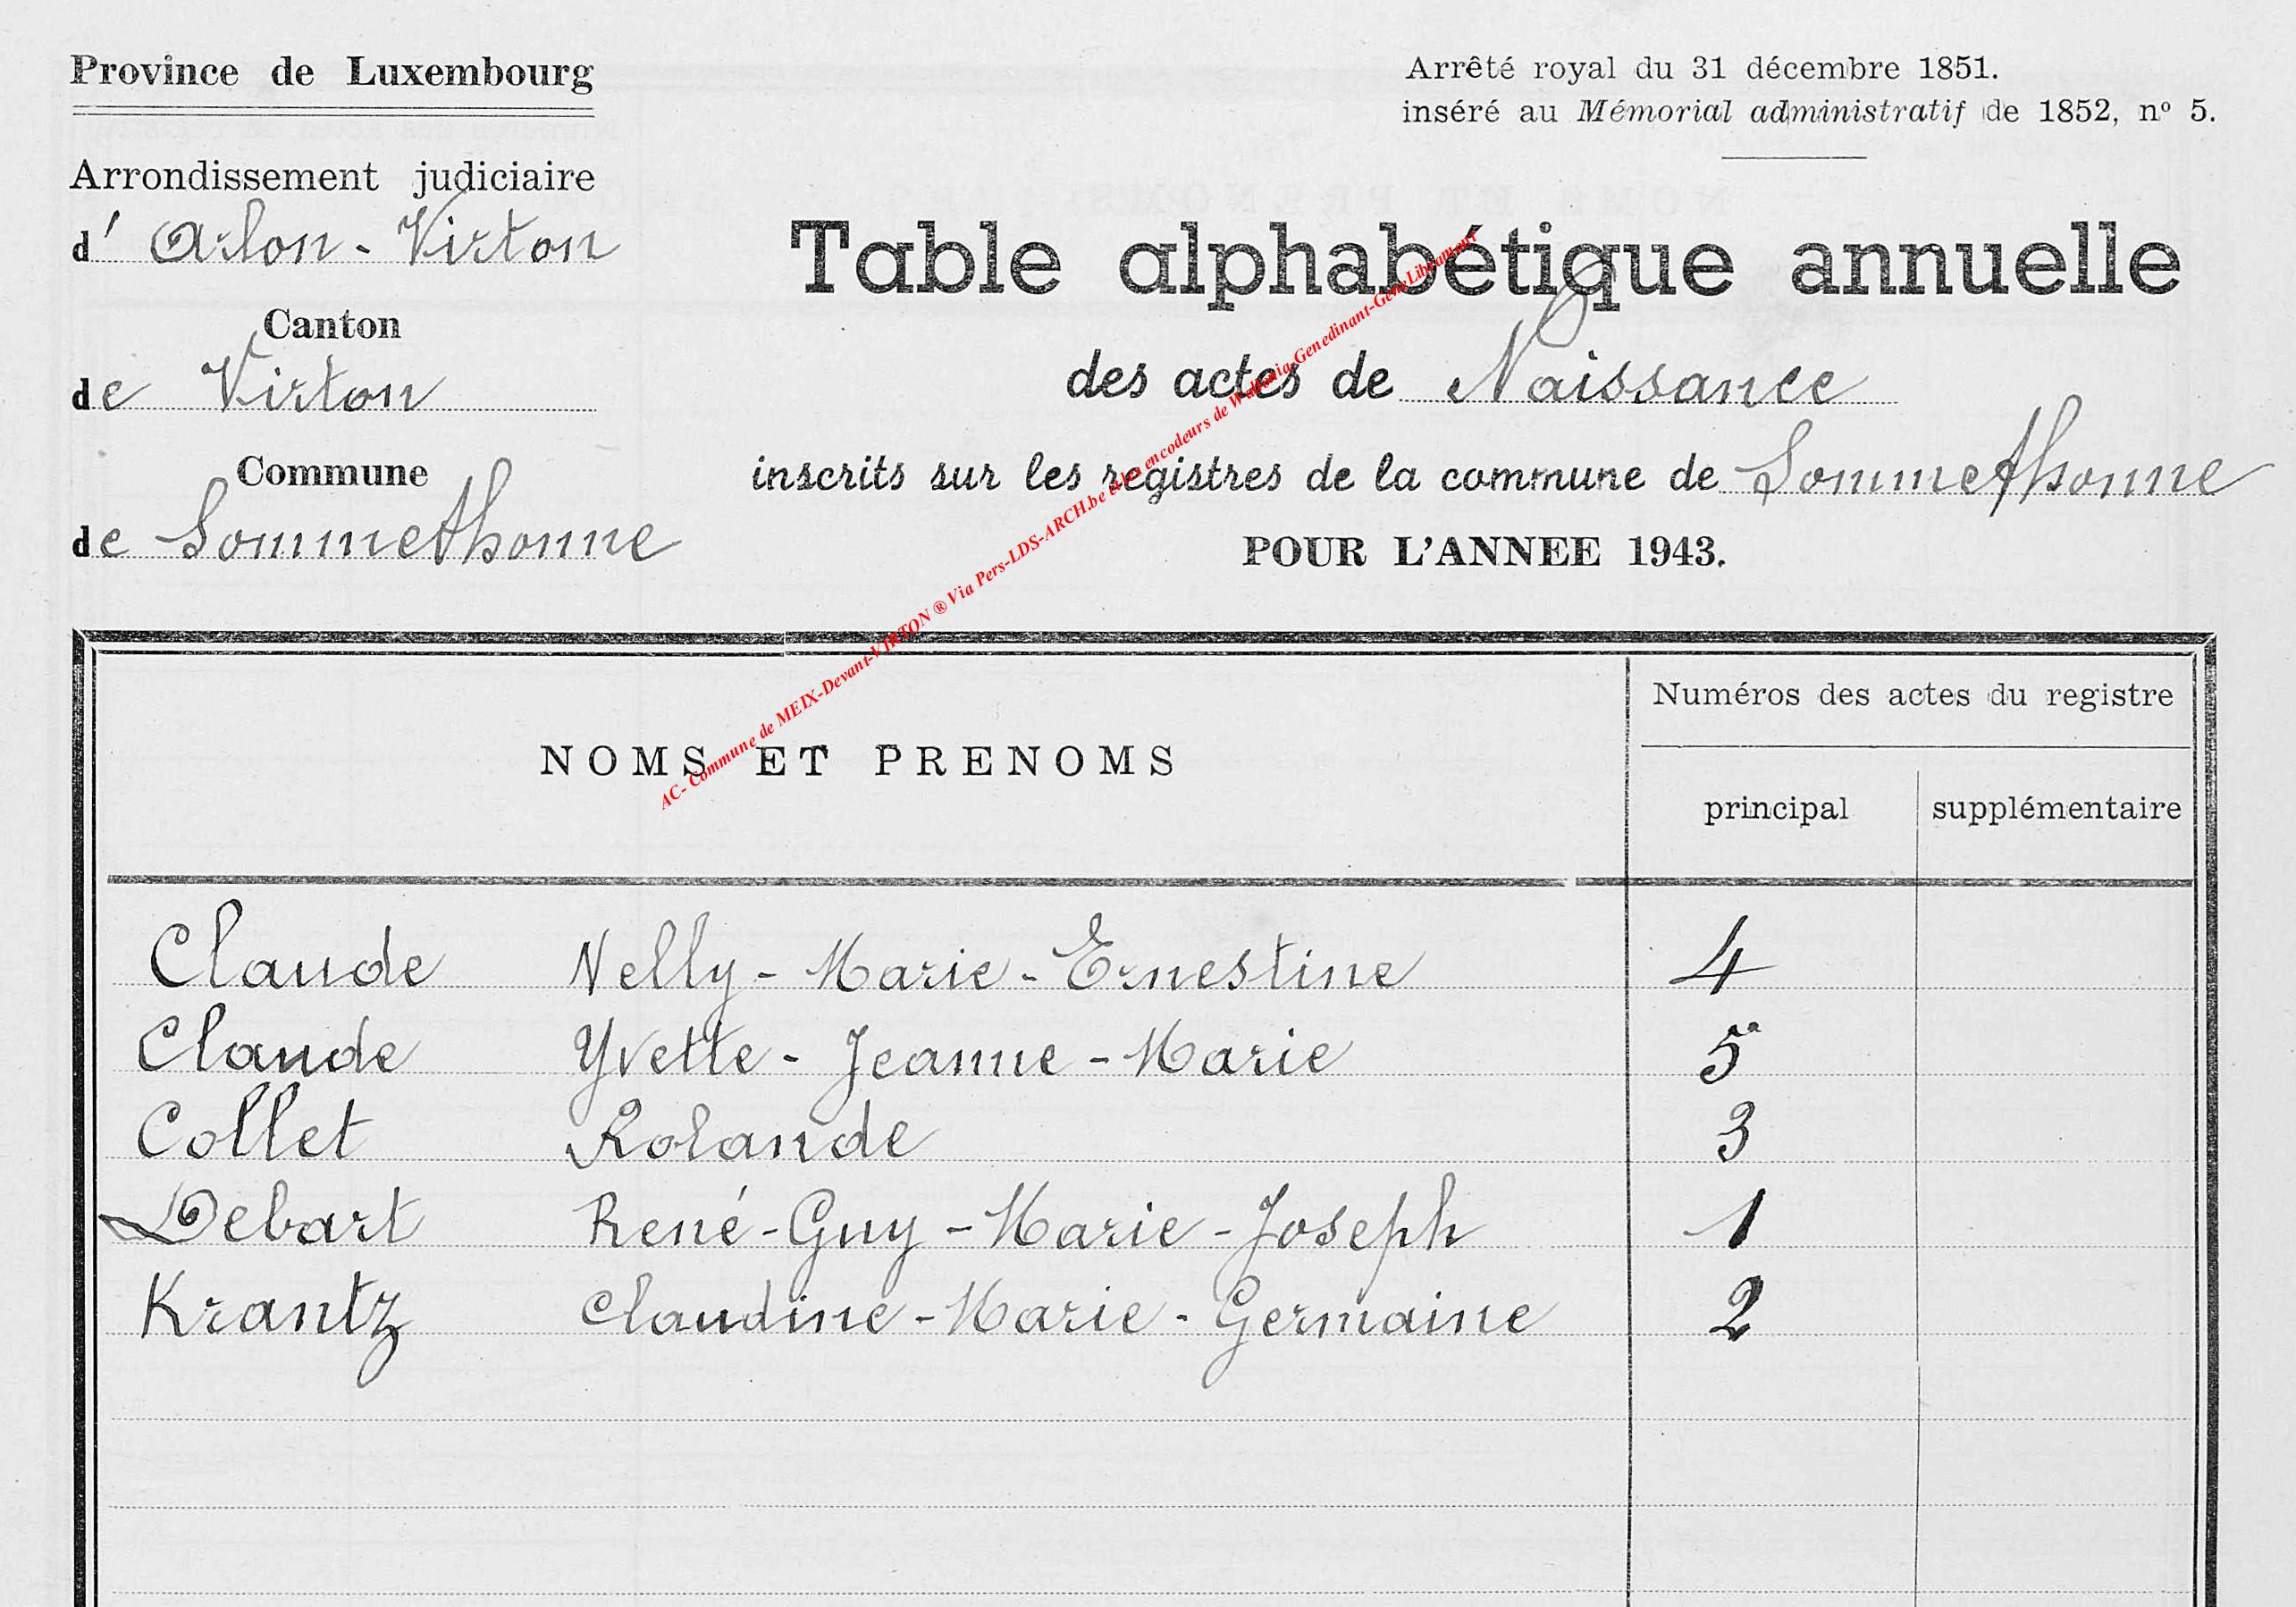 Province de Luxembourg
Arrêté royal du 31 décembre 1851.
inséré au Mémorial administratif de 1852, nº 5.
Arrondissement judiciaire
d' Arlon - Virton
Canton
de Virton
Commune
de Sommethonne
Table alphabétique annuelle
des actes de Naissance
inscrits sur les registres de la commune de Sommethonne
POUR L'ANNEE 1943.
AC- Commune de MEIX-Devant-VIRTON ® Via Pers-LDS-ARCH.be et les encodeurs de Wallonia-Genedinant-GeneLibramont
NOMS ET PRENOMS
Numéros des actes du registre
principal supplémentaire
Claude Nelly - Marie - Ernestine 4
Claude Yvette - Jeanne - Marie 5
Collet Rolande 3
Debart René - Guy - Marie - Joseph 1
Krantz Claudine - Marie - Germaine 2